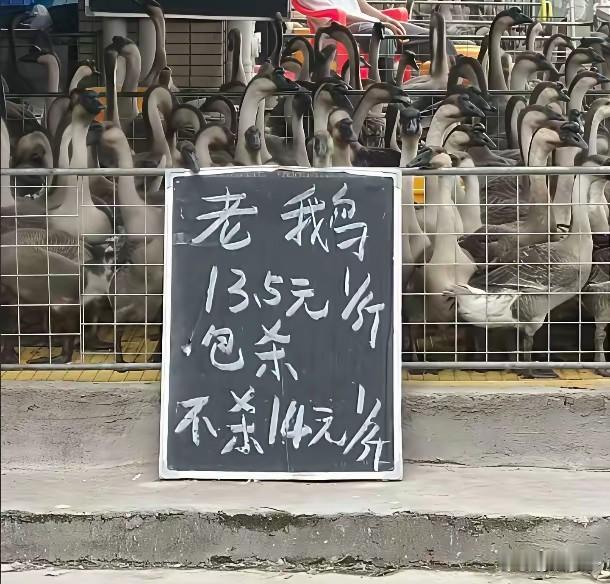 老鹅
13.5元/斤
包杀
不杀14元/斤